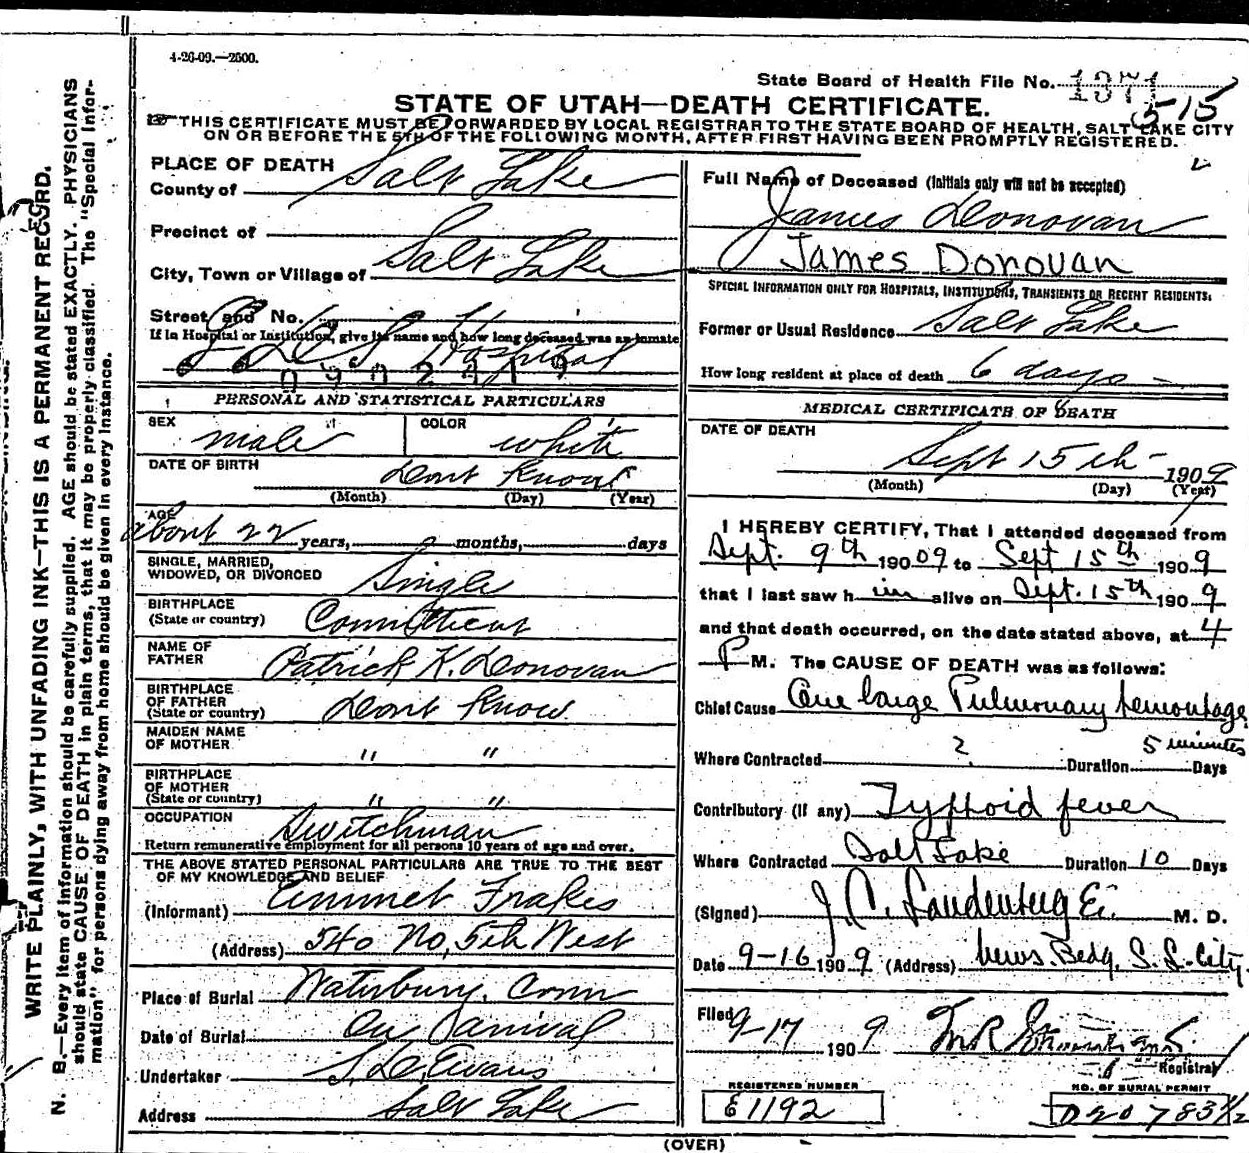 4-26-09.—2500.
State Board of Health File No. 1371
515
STATE OF UTAH—DEATH CERTIFICATE.
THIS CERTIFICATE MUST BE FORWARDED BY LOCAL REGISTRAR TO THE STATE BOARD OF HEALTH, SALT LAKE CITY
ON OR BEFORE THE 5TH OF THE FOLLOWING MONTH, AFTER FIRST HAVING BEEN PROMPTLY REGISTERED.
WRITE PLAINLY, WITH UNFADING INK—THIS IS A PERMANENT RECORD.
N. B.—Every item of information should be carefully supplied. AGE should be stated EXACTLY. PHYSICIANS
should state CAUSE OF DEATH in plain terms, that it may be properly classified. The "Special Infor-
mation" for persons dying away from home should be given in every instance.
PLACE OF DEATH
County of Salt Lake
Precinct of
City, Town or Village of Salt Lake
Street and No.
If in Hospital or Institution, give its name and how long deceased was an inmate
L D S Hospital
PERSONAL AND STATISTICAL PARTICULARS
SEX male COLOR white
DATE OF BIRTH Dont Know
(Month) (Day) (Year)
AGE about 22 years, months, days
SINGLE, MARRIED,
WIDOWED, OR DIVORCED Single
BIRTHPLACE
(State or country) Connitticut
NAME OF
FATHER Patrick K. Donovan
BIRTHPLACE
OF FATHER
(State or country) Dont Know
MAIDEN NAME
OF MOTHER " "
BIRTHPLACE
OF MOTHER
(State or country) " "
OCCUPATION Switchman
Return remunerative employment for all persons 10 years of age and over.
THE ABOVE STATED PERSONAL PARTICULARS ARE TRUE TO THE BEST
OF MY KNOWLEDGE AND BELIEF
(Informant) Emmet Frakes
(Address) 540 No, 5th West
Place of Burial Waterbury. Conn
Date of Burial On Arrival
Undertaker S. D. Evans
Address Salt Lake
Full Name of Deceased (Initials only will not be accepted)
James Donovan
James Donovan
SPECIAL INFORMATION ONLY FOR HOSPITALS, INSTITUTIONS, TRANSIENTS OR RECENT RESIDENTS.
Former or Usual Residence Salt Lake
How long resident at place of death 6 days
MEDICAL CERTIFICATE OF DEATH
DATE OF DEATH
Sept 15th 1909
(Month) (Day) (Year)
I HEREBY CERTIFY, That I attended deceased from
Sept. 9th 190 09 to Sept 15th 190 9
that I last saw h im alive on Sept. 15th 190 9
and that death occurred, on the date stated above, at 4
P M. The CAUSE OF DEATH was as follows:
Chief Cause One large Pulmonary hemorrhage
5 minutes
Where Contracted ? Duration Days
Contributory (if any) Typhoid fever
Where Contracted Salt Lake Duration 10 Days
(Signed) J. C. M. D.
Date 9-16 190 9 (Address) News. Bedg. S. L. City.
Filed 9-17 190 9
Registrar
REGISTERED NUMBER
E1192
NO. OF BURIAL PERMIT
D20783½
(OVER)